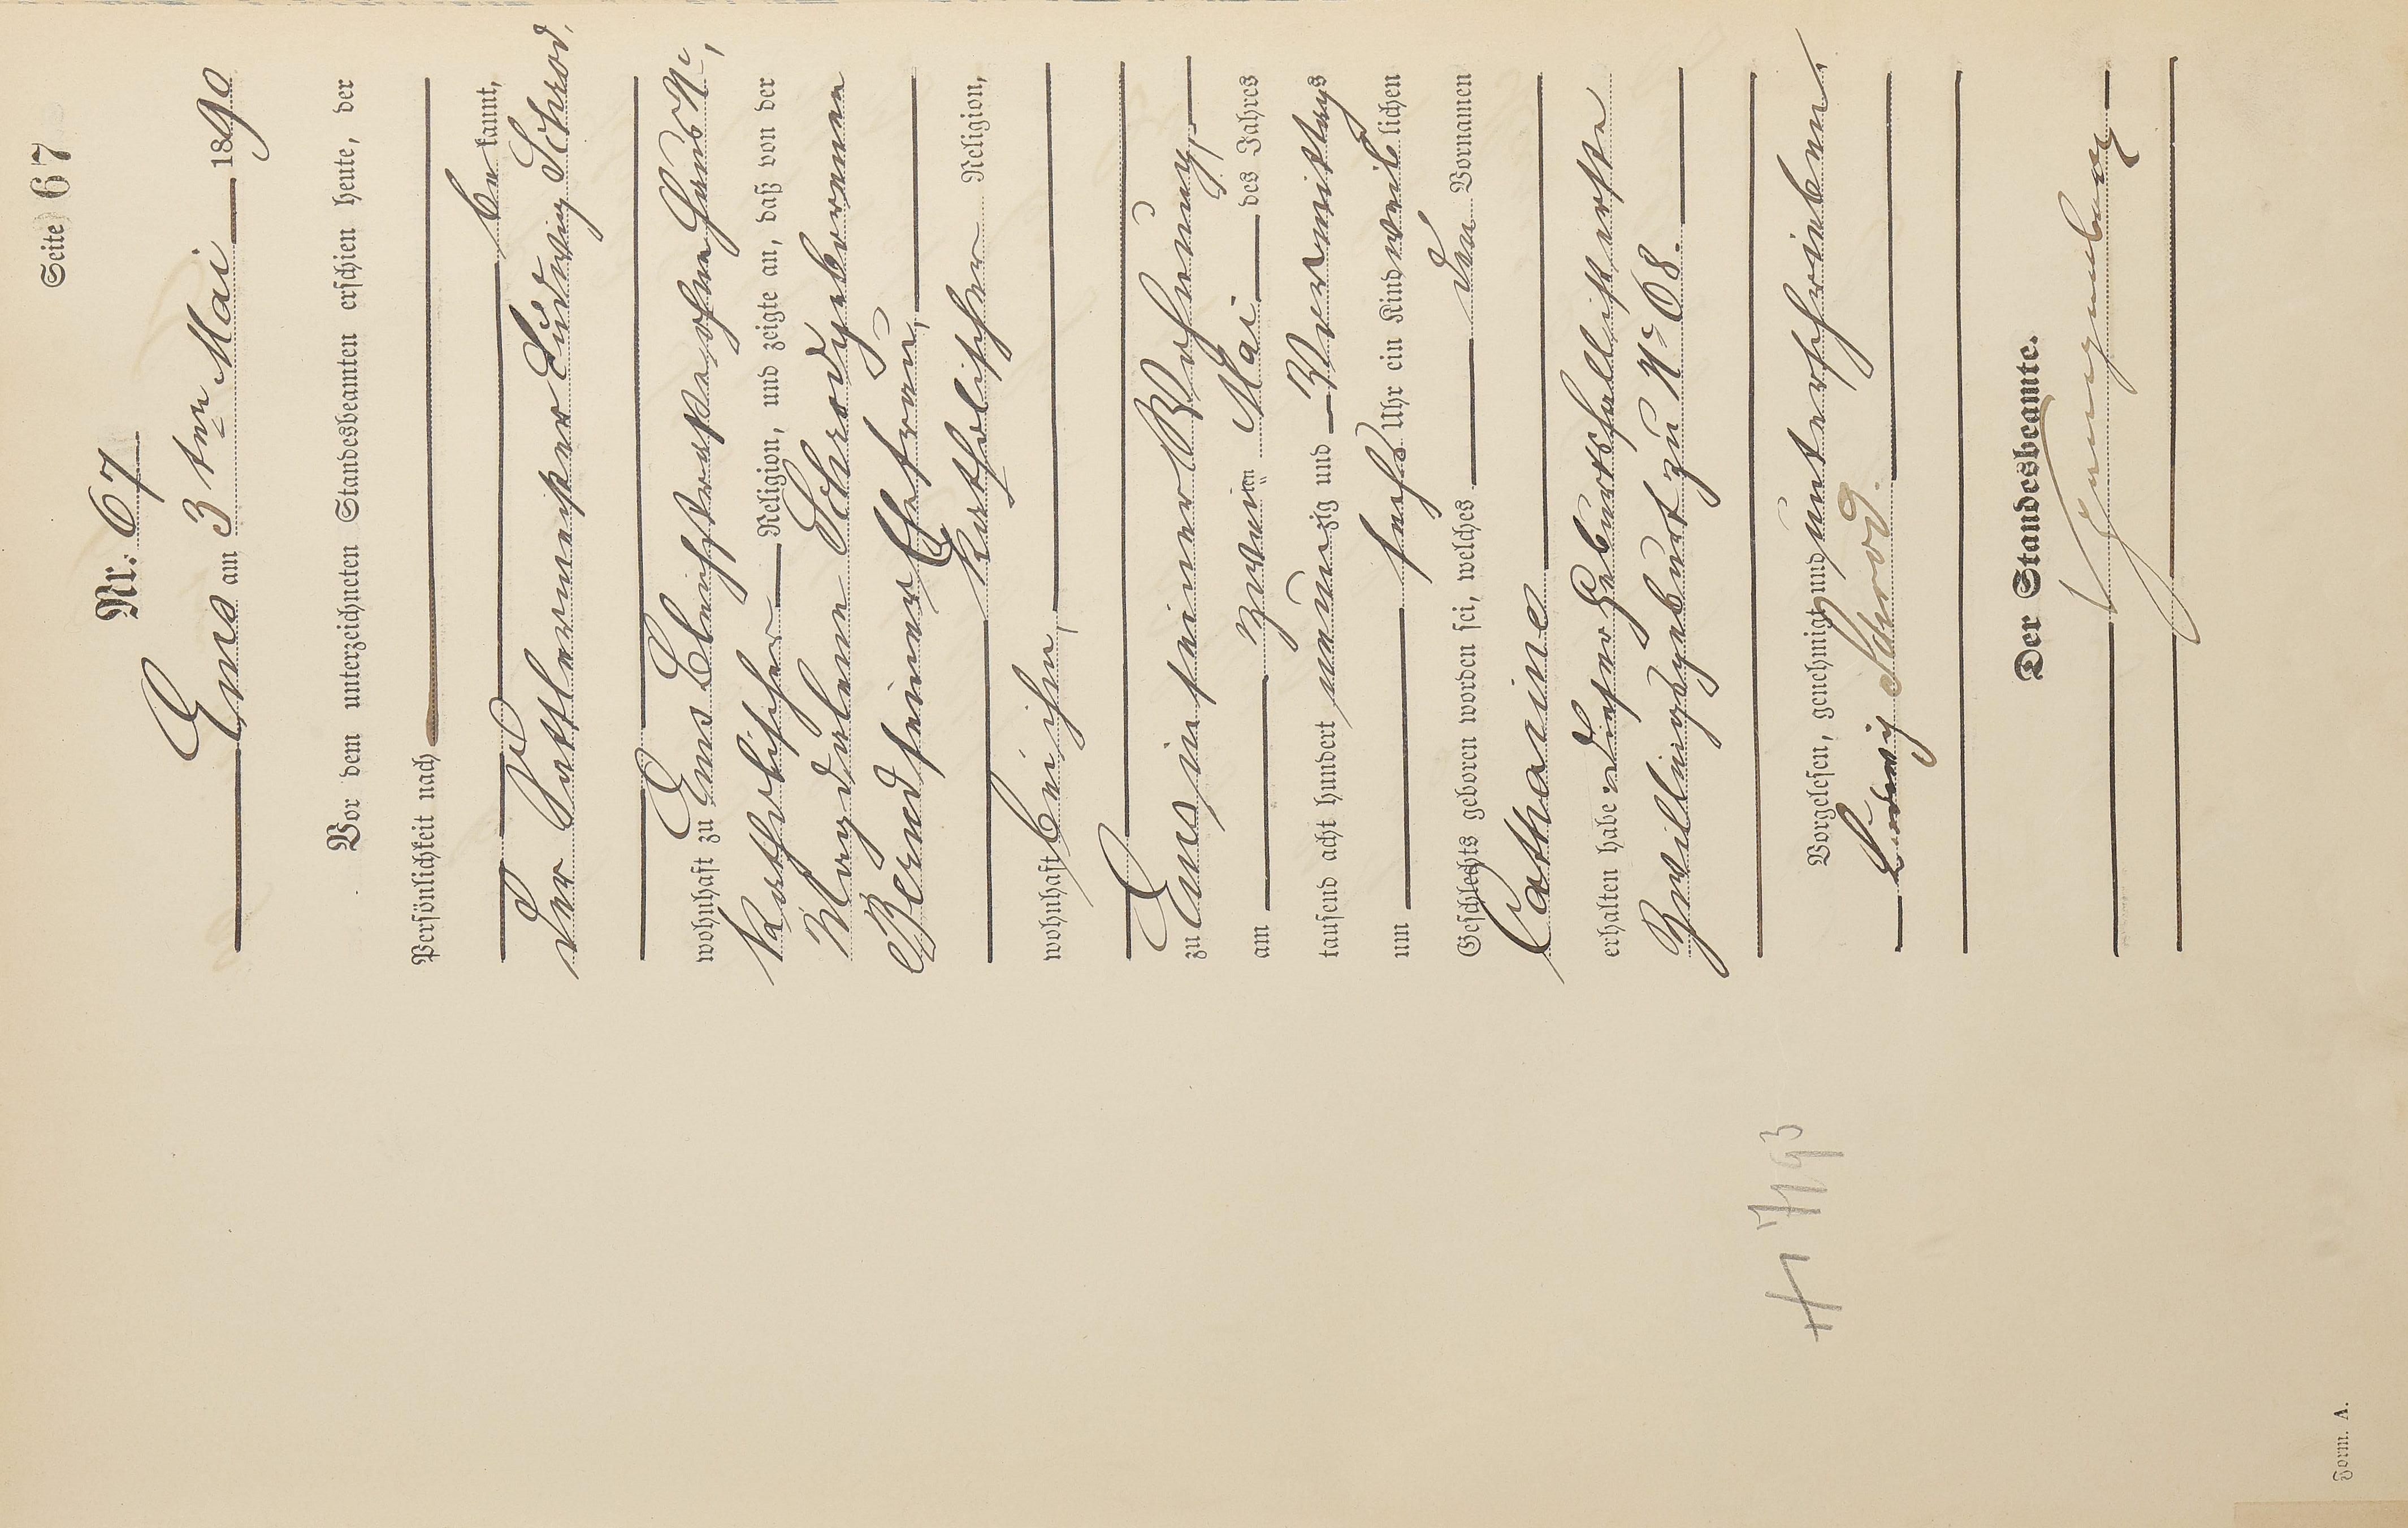 Seite 67
Nr. 67
Ems am 3ten Mai 1890
Vor dem unterzeichneten Standesbeamten erschien heute, der
Persönlichkeit nach
bekannt,
der Sattlermeister Ludwig Schrod,
wohnhaft zu Ems Bleichstraße ohne Haus No,
katholischer Religion, und zeigte an, daß von der
Magdalene Schrod geborenen
Bernd seiner Ehefrau,
katholischer Religion,
wohnhaft bei ihm,
zu Ems in seiner Wohnung,
am zweiten Mai des Jahres
tausend acht hundert neunzig und Vormittags
um sechs Uhr ein Kind weiblichen
Geschlechts geboren worden sei, welches den Vornamen
Catharine
erhalten habe. Dieser Geburtsfall ist erste
Zwillingsgeburt zu No 68.
Vorgelesen, genehmigt und unterschrieben
Ludwig Schrod.
Der Standesbeamte.
Form. A.